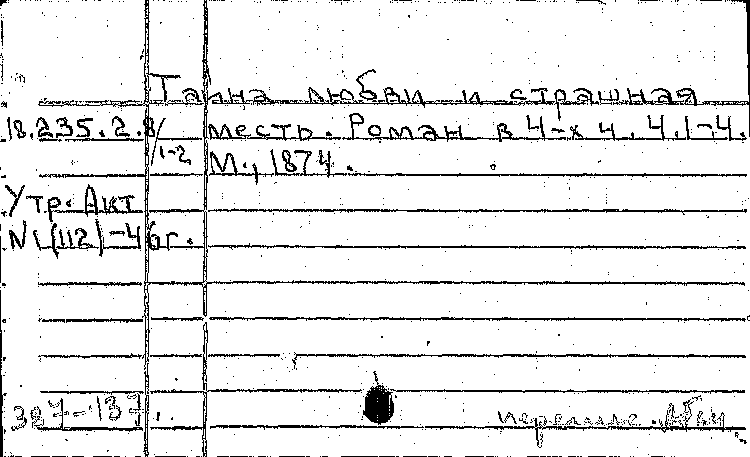 Тайна любви и страшная
18.235.2.8/1-2 месть. Роман в 4-х ч. Ч.1-4.
М., 1874.
Утр. Акт
N1(112)-46г.
387-137